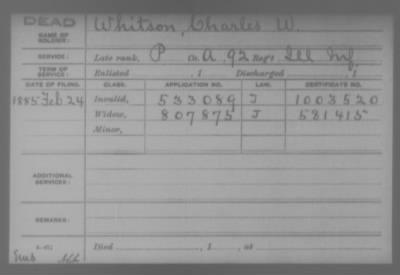 DEAD
NAME OF SOLDIER: Whitson, Charles W.
SERVICE: Late rank, P Co. A, 92 Reg't Ill Inf.
TERM OF SERVICE: Enlisted , 1 Discharged , 1
DATE OF FILING. CLASS. APPLICATION NO. LAW. CERTIFICATE NO.
1885 Feb 24 Invalid, 533089 J 1003520
Widow, 807875 J 581415
Minor,
ADDITIONAL SERVICES:
REMARKS:
Died , 1 , at